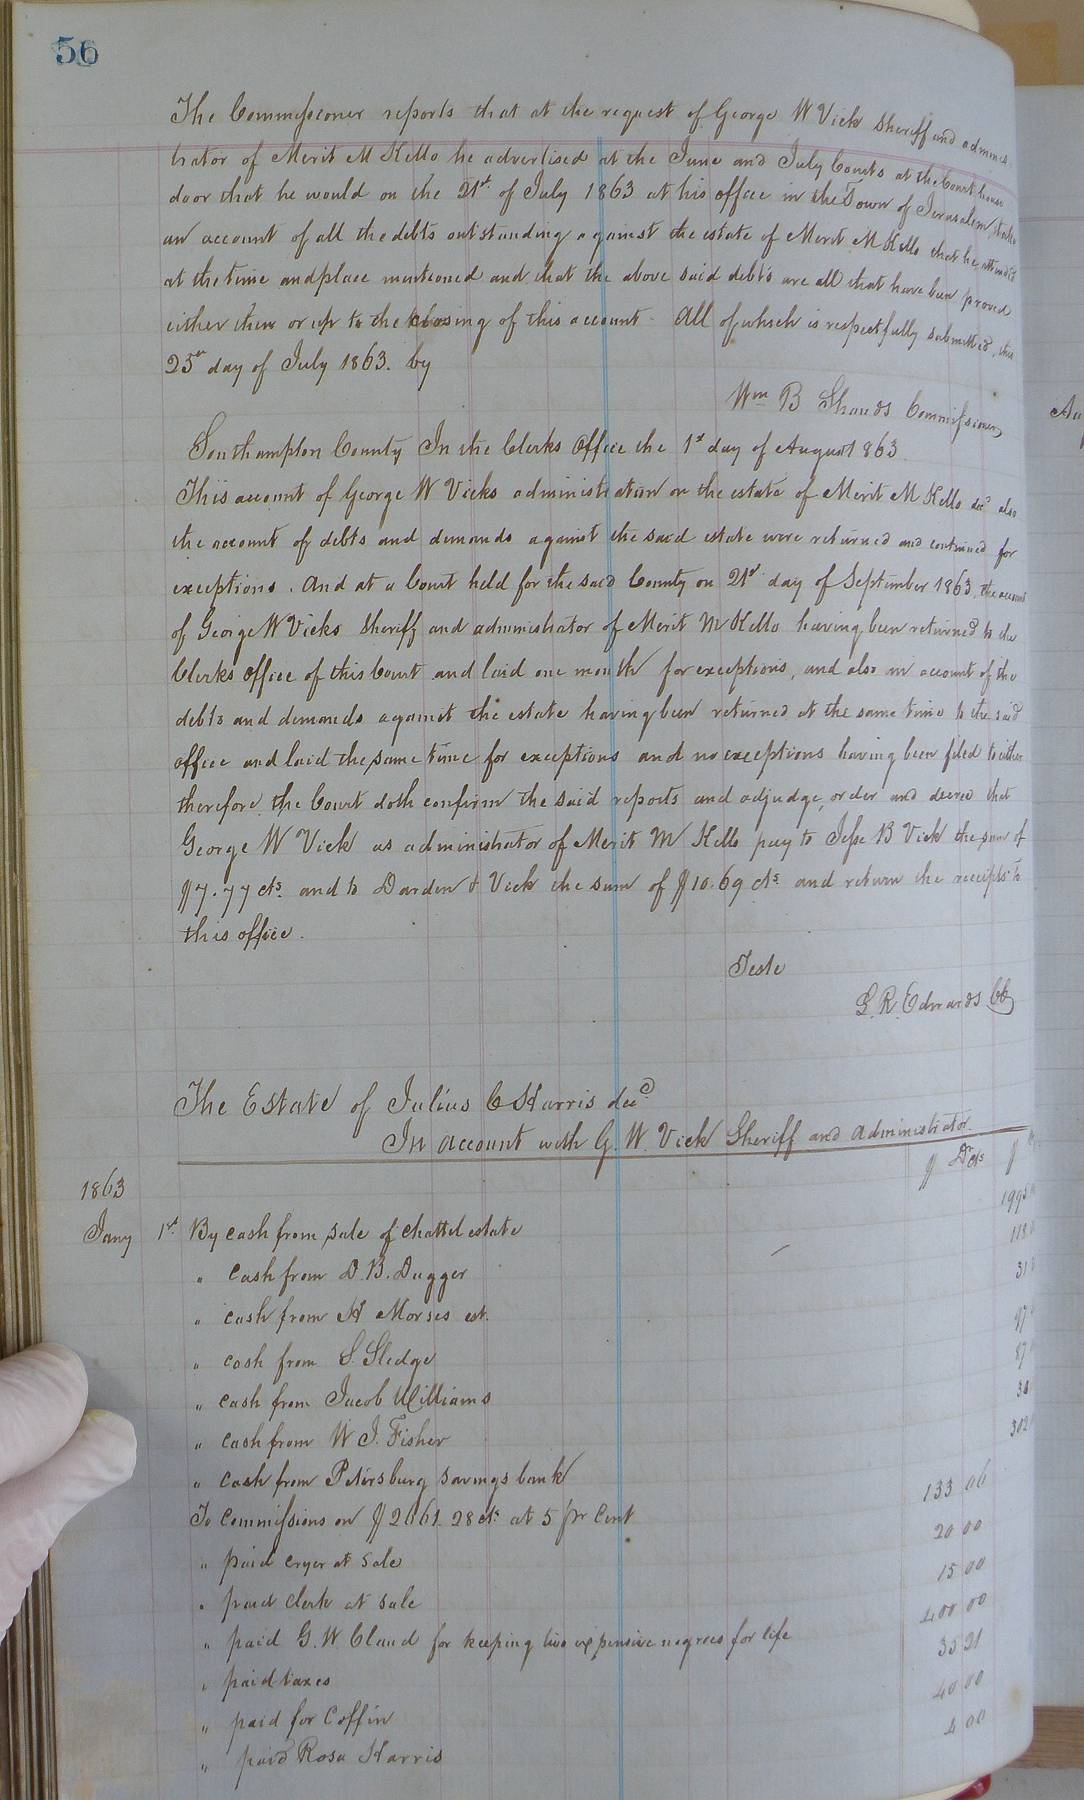 56
The Commissioner reports that at the request of George W Vick Sheriff and adminis-
trator of Merit M Kello he advertised at the June and July Courts at the Court house
door that he would on the 21st of July 1863 at his office in the Town of Jerusalem, state
an account of all the debts outstanding against the estate of Merit M Kello that he attended
at the time and place mentioned and that the above said debts are all that have been proved
either then or up to the closing of this account. All of which is respectfully submitted, this
25th day of July 1863. by
Wm B Shands Commissioner
Southampton County In the Clerks Office the 1st day of August 1863.
This account of George W Vicks administration on the estate of Merit M Kello decd also
the account of debts and demands against the said estate were returned and continued for
exceptions. And at a Court held for the said County on 21st day of September 1863, the account
of George W Vicks Sheriff and administrator of Merit M Kello having been returned to the
Clerks Office of this Court and laid one month for exceptions, and also an account of the
debts and demands against the estate having been returned at the same time to the said
office and laid the same time for exceptions and no exceptions having been filed to either
therefore the Court doth confirm the said reports and adjudge, order and decree that
George W Vick as administrator of Merit M Kello pay to Jesse B Vick the sum of
$7.77 cts and to Darden & Vick the sum of $10.69 cts and return the receipts to
this office.
Teste
L. R. Edwards CC
The Estate of Julius C Harris decd
In account with G. W. Vick Sheriff and Administrator.
$ Dr cts $
1863 1995
Jany 1st By cash from sale of chattel estate 118
" cash from D. B. Dugger 31
" cash from H Morses est.
" cash from S. Sledge 97
" cash from Jacob Williams 87
" cash from W J. Fisher 30
" cash from Petersburg Savings bank 302
To Commissions on $2661.28 cts at 5 pr Cent 133 06
" paid cryer at sale 20 00
" paid clerk at sale 15 00
" paid G. W. Claud for keeping two expensive negroes for life 400 00
" paid taxes 35 21
" paid for Coffin 40 00
" paid Rosa Harris 4 00
Au